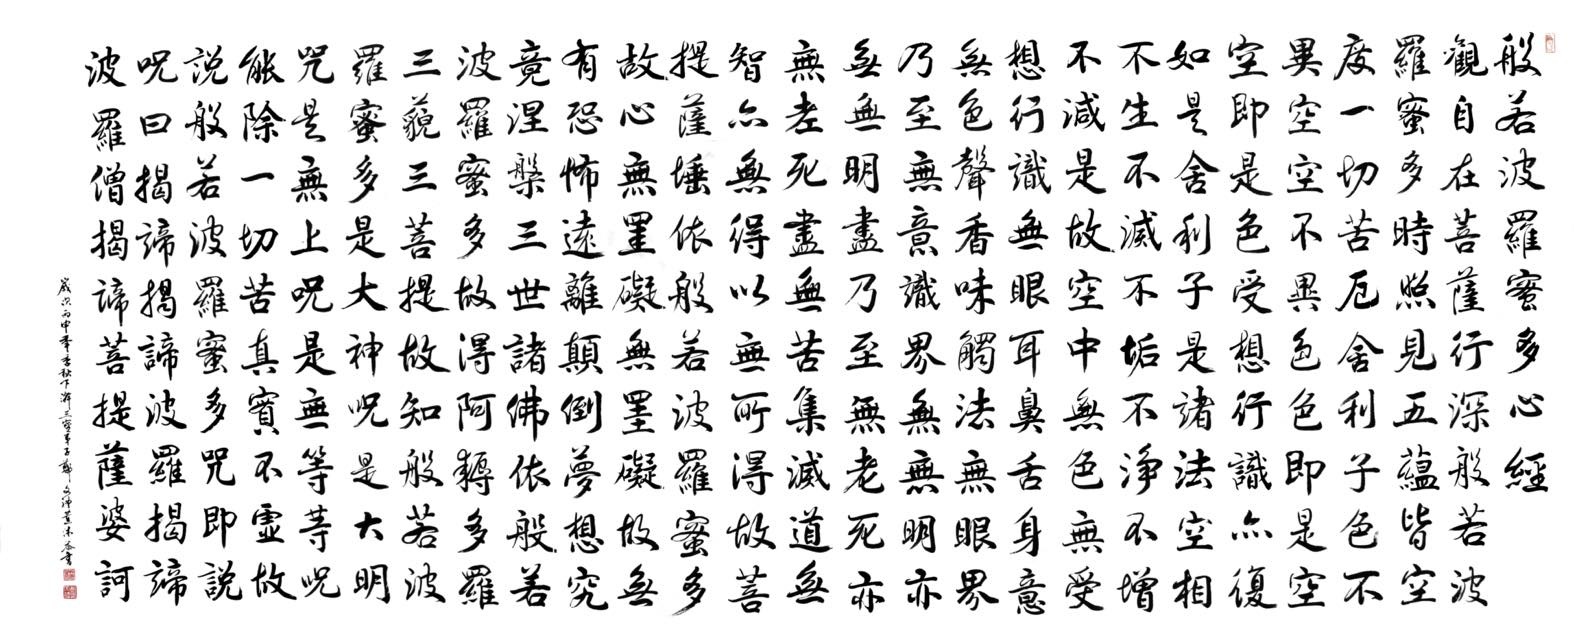 般若波羅蜜多心經
觀自在菩薩行深般若波
羅蜜多時照見五蘊皆空
度一切苦厄舍利子色不
異空空不異色色即是空
空即是色受想行識亦復
如是舍利子是諸法空相
不生不滅不垢不淨不增
不減是故空中無色無受
想行識無眼耳鼻舌身意
無色聲香味觸法無眼界
乃至無意識界無無明亦
無無明盡乃至無老死亦
無老死盡無苦集滅道無
智亦無得以無所得故菩
提薩埵依般若波羅蜜多
故心無罣礙無罣礙故無
有恐怖遠離顛倒夢想究
竟涅槃三世諸佛依般若
波羅蜜多故得阿耨多羅
三藐三菩提故知般若波
羅蜜多是大神咒是大明
咒是無上咒是無等等咒
能除一切苦真實不虛故
說般若波羅蜜多咒即說
咒曰揭諦揭諦波羅揭諦
波羅僧揭諦菩提薩婆訶
歲次丙申年季秋下澣三寶弟子鄭文薰沐恭書